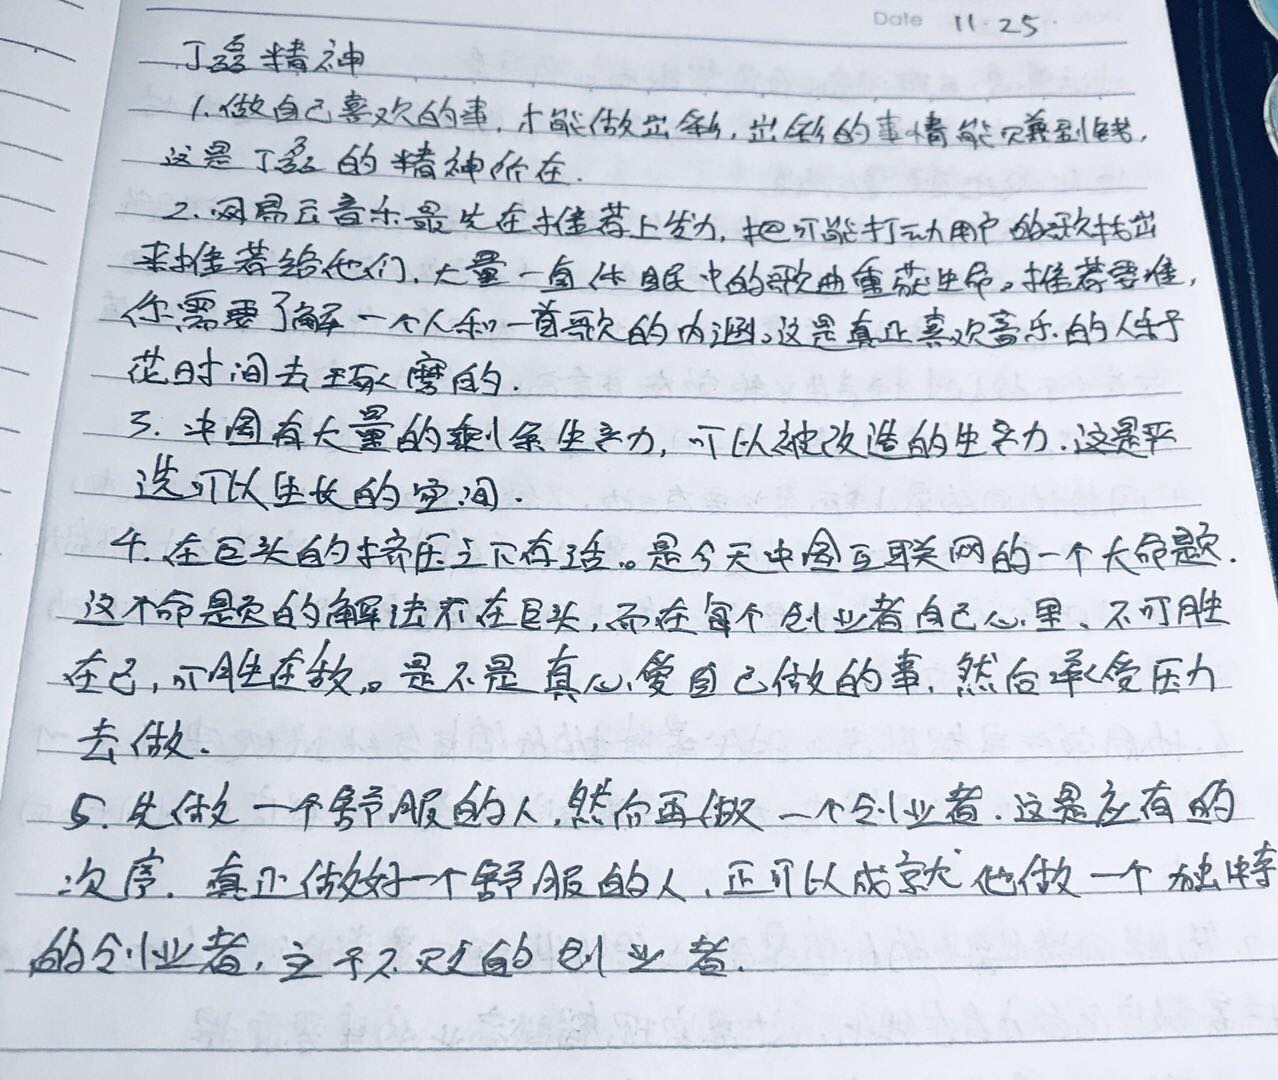 Date 11.25.
丁磊精神
1.做自己喜欢的事,才能做出彩,出彩的事情能兼到钱,
这是丁磊的精神所在.
2.网易云音乐最先在推荐上发力,把可能打动用户的歌找出
来推荐给他们,大量一直休眠中的歌曲重获生命。推荐要准,
你需要了解一个人和一首歌的内涵。这是真正喜欢音乐的人乐于
花时间去琢磨的.
3.中国有大量的剩余生产力,可以被改造的生产力.这是严
选可以生长的空间.
4.在巨头的挤压之下存活。是今天中国互联网的一个大命题.
这个命题的解法不在巨头,而在每个创业者自己心里、不可胜
在己,可胜在敌。是不是真心爱自己做的事,然后承受压力
去做.
5.先做一个舒服的人,然后再做一个创业者.这是应有的
次序.真正做好一个舒服的人,正可以成就他做一个独特
的创业者,立于不败的创业者.